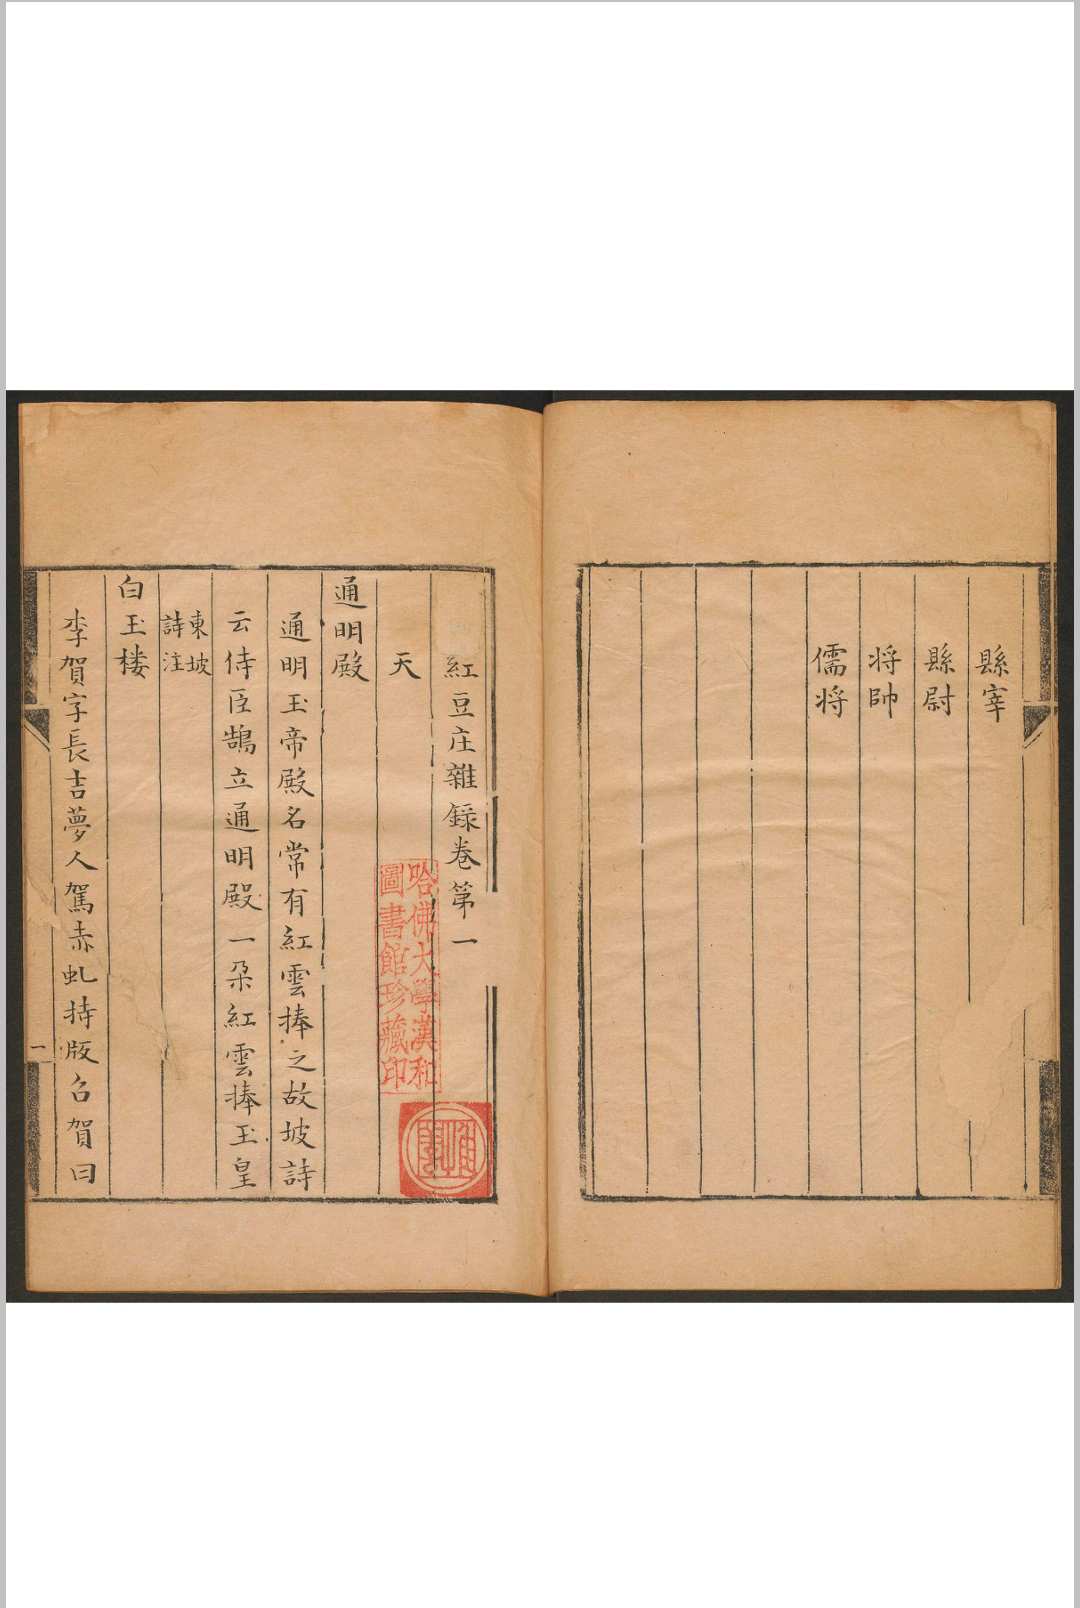 縣宰
縣尉
将帥
儒将
紅豆庄雜錄卷第一
天
通明殿
通明玉帝殿名常有紅雲捧之故坡詩
云侍臣鵠立通明殿一朶紅雲捧玉皇
東坡
詩注
白玉楼
李賀字長吉夢人駕赤虬持版召賀曰
一
哈佛大學漢和
圖書館珍藏印